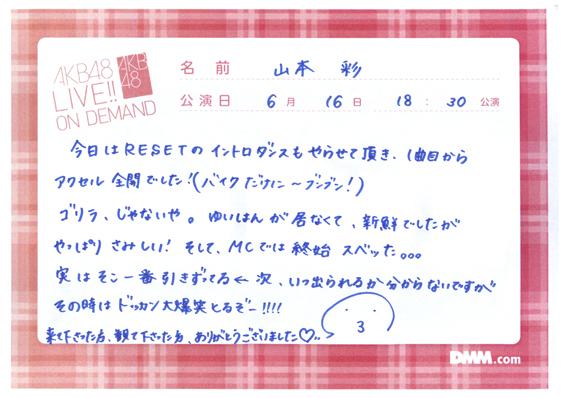 AKB48
LIVE!!
ON DEMAND
AKB
48
名前 山本 彩
公演日 6月 16日 18:30 公演
今日はRESETのイントロダンスもやらせて頂き、1曲目から
アクセル全開でした!(バイクだけに〜ブンブン!)
ゴリラ、じゃないや。ゆいはんが居なくて、新鮮でしたが
やっぱりさみしい!そして、MCでは終始スベッた。。。
実はそこ一番引きずってる← 次、いつ出られるか分からないですが
その時はドッカン大爆笑とるぞー!!!!
来て下さった方、観て下さった方、ありがとうございました♡
DMM.com